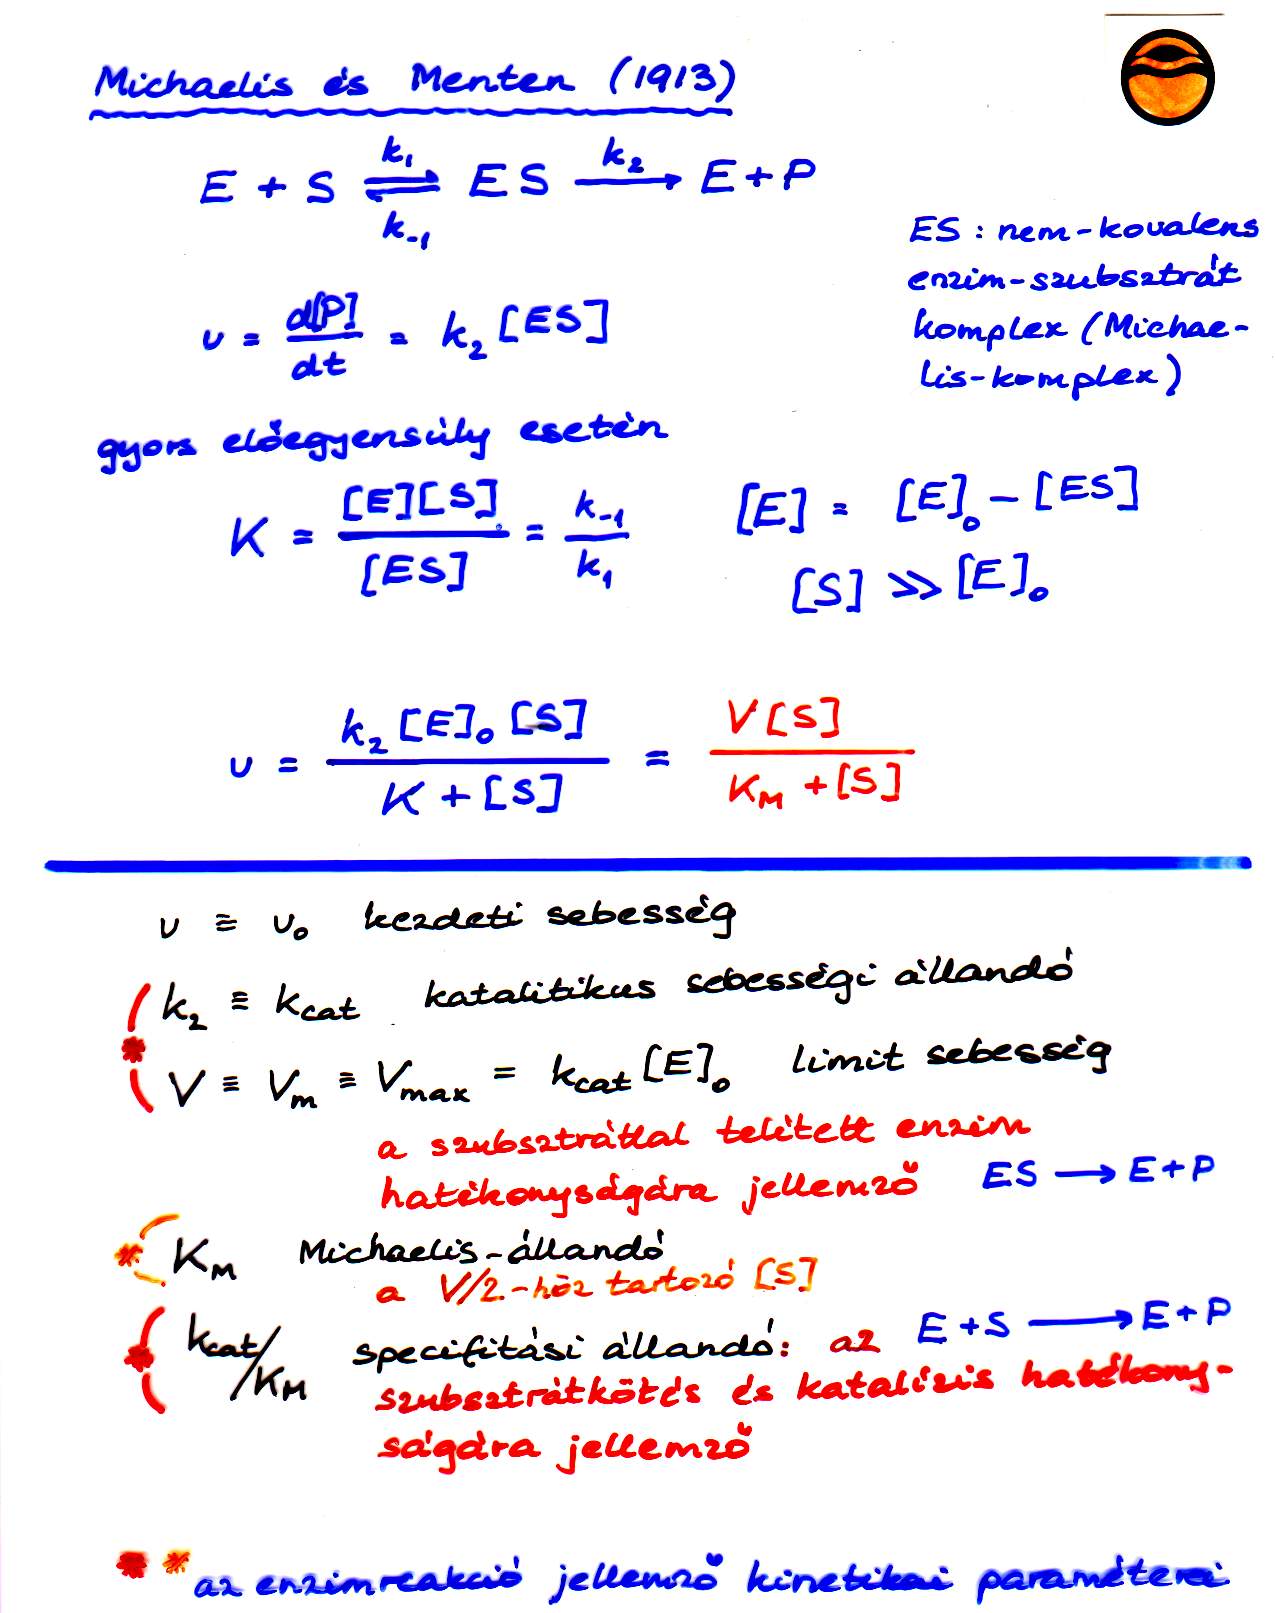 Michaelis és Menten (1913)
E + S ⇌ ES → E + P
k₁ k₋₁ k₂
ES : nem-kovalens
enzim-szubsztrát
komplex (Michae-
lis-komplex)
v = d[P]/dt = k₂ [ES]
gyors előegyensúly esetén
K = [E][S]/[ES] = k₋₁/k₁
[E] = [E]₀ - [ES]
[S] ≫ [E]₀
v = k₂ [E]₀ [S] / K + [S] = V [S] / K_M + [S]
v ≡ v₀ kezdeti sebesség
k₂ ≡ k_cat katalitikus sebességi állandó
*
V ≡ V_m ≡ V_max = k_cat [E]₀ limit sebesség
a szubsztráttal telített enzim
hatékonyságára jellemző ES → E + P
* K_M Michaelis-állandó
a V/2-höz tartozó [S]
* k_cat/K_M specifitási állandó: az E + S → E + P
szubsztrátkötés és katalízis hatékony-
ságára jellemző
* * az enzimreakció jellemző kinetikai paraméterei